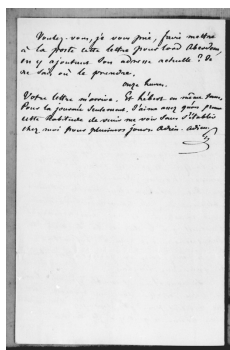 Voulez-vous, je vous prie, faire mettre
à la poste cette lettre pour lord Aberdeen,
en y ajoutant son adresse actuelle ? Je
ne sais où le prendre.
onze heures.
Votre lettre m'arrive. Et Hébert en même temps,
Pour la journée seulement. J'aime assez qu'on prenne
cette habitude de venir me voir sans s'établir
chez moi pour plusieurs jours. Adieu. Adieu.